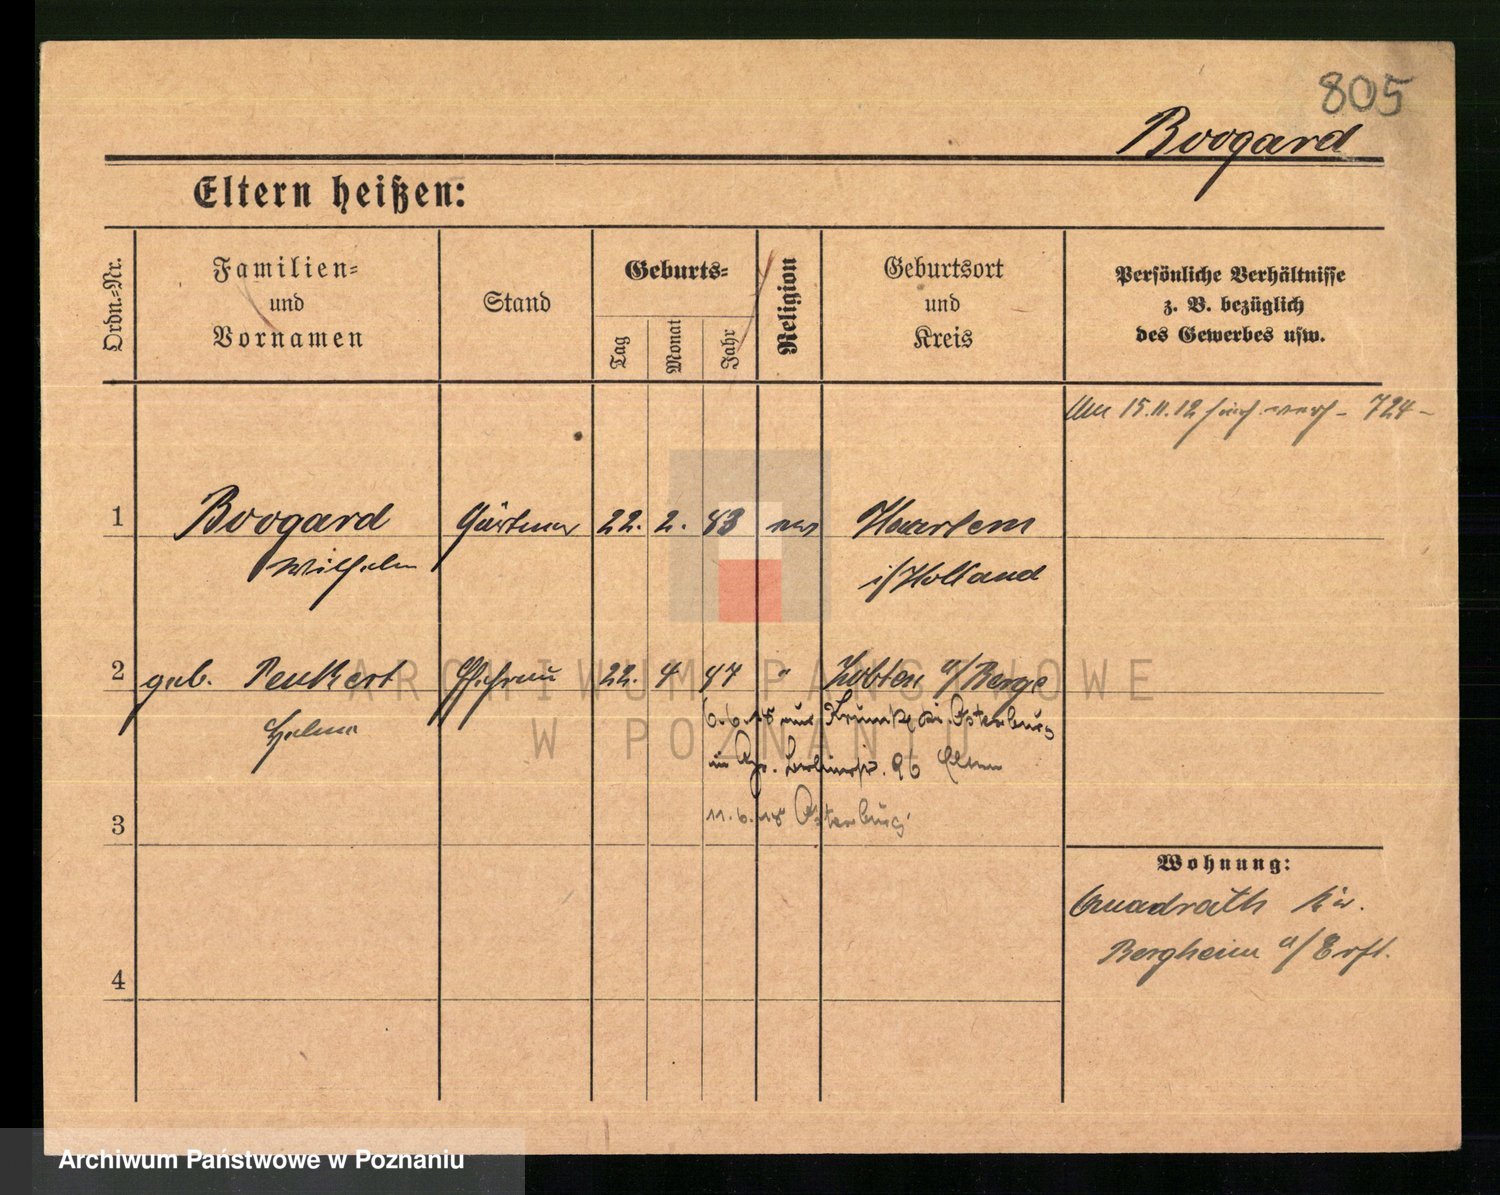 805
Boogard
Eltern heißen:
Ordn.-Nr.
Familien-
und
Vornamen
Stand
Geburts-
Tag
Monat
Jahr
Religion
Geburtsort
und
Kreis
Persönliche Verhältnisse
z. B. bezüglich
des Gewerbes usw.
15.11.12 724
1 Boogard Gärtner 22. 2. 83 Haarlem
Wilhelm i/Holland
2 geb. Penkert Ehefrau 22. 4 87 " Zobten a/Berge
6.6.18 aus Osterburg
96 Eltern
3
11.6.18 Osterburg
Wohnung:
Quadrath Kr.
Bergheim a/Erft.
4
ARCHIWUM PAŃSTWOWE
W POZNANIU
Archiwum Państwowe w Poznaniu